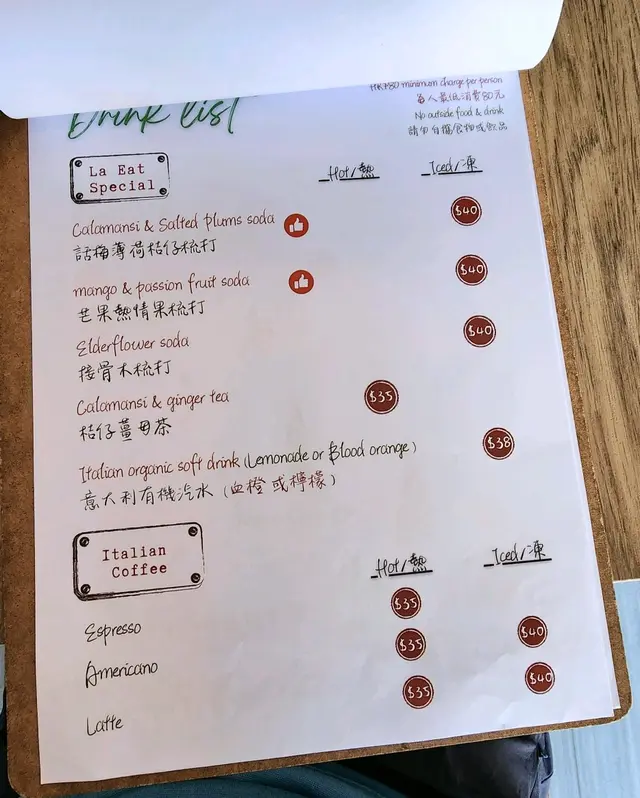 HK$80 minimum charge per person
每人最低消費80元
No outside food & drink
請勿自攜食物或飲品
Drink list
La Eat
Special
Hot/熱 Iced/凍
Calamansi & Salted plums soda $40
話梅薄荷桔仔梳打
mango & passion fruit soda $40
芒果熱情果梳打
Elderflower soda $40
接骨木梳打
Calamansi & ginger tea $35
桔仔薑母茶
Italian organic soft drink (Lemonade or Blood orange) $38
意大利有機汽水 (血橙 或檸檬)
Italian
Coffee
Hot/熱 Iced/凍
Espresso $35
Americano $35 $40
Latte $35 $40